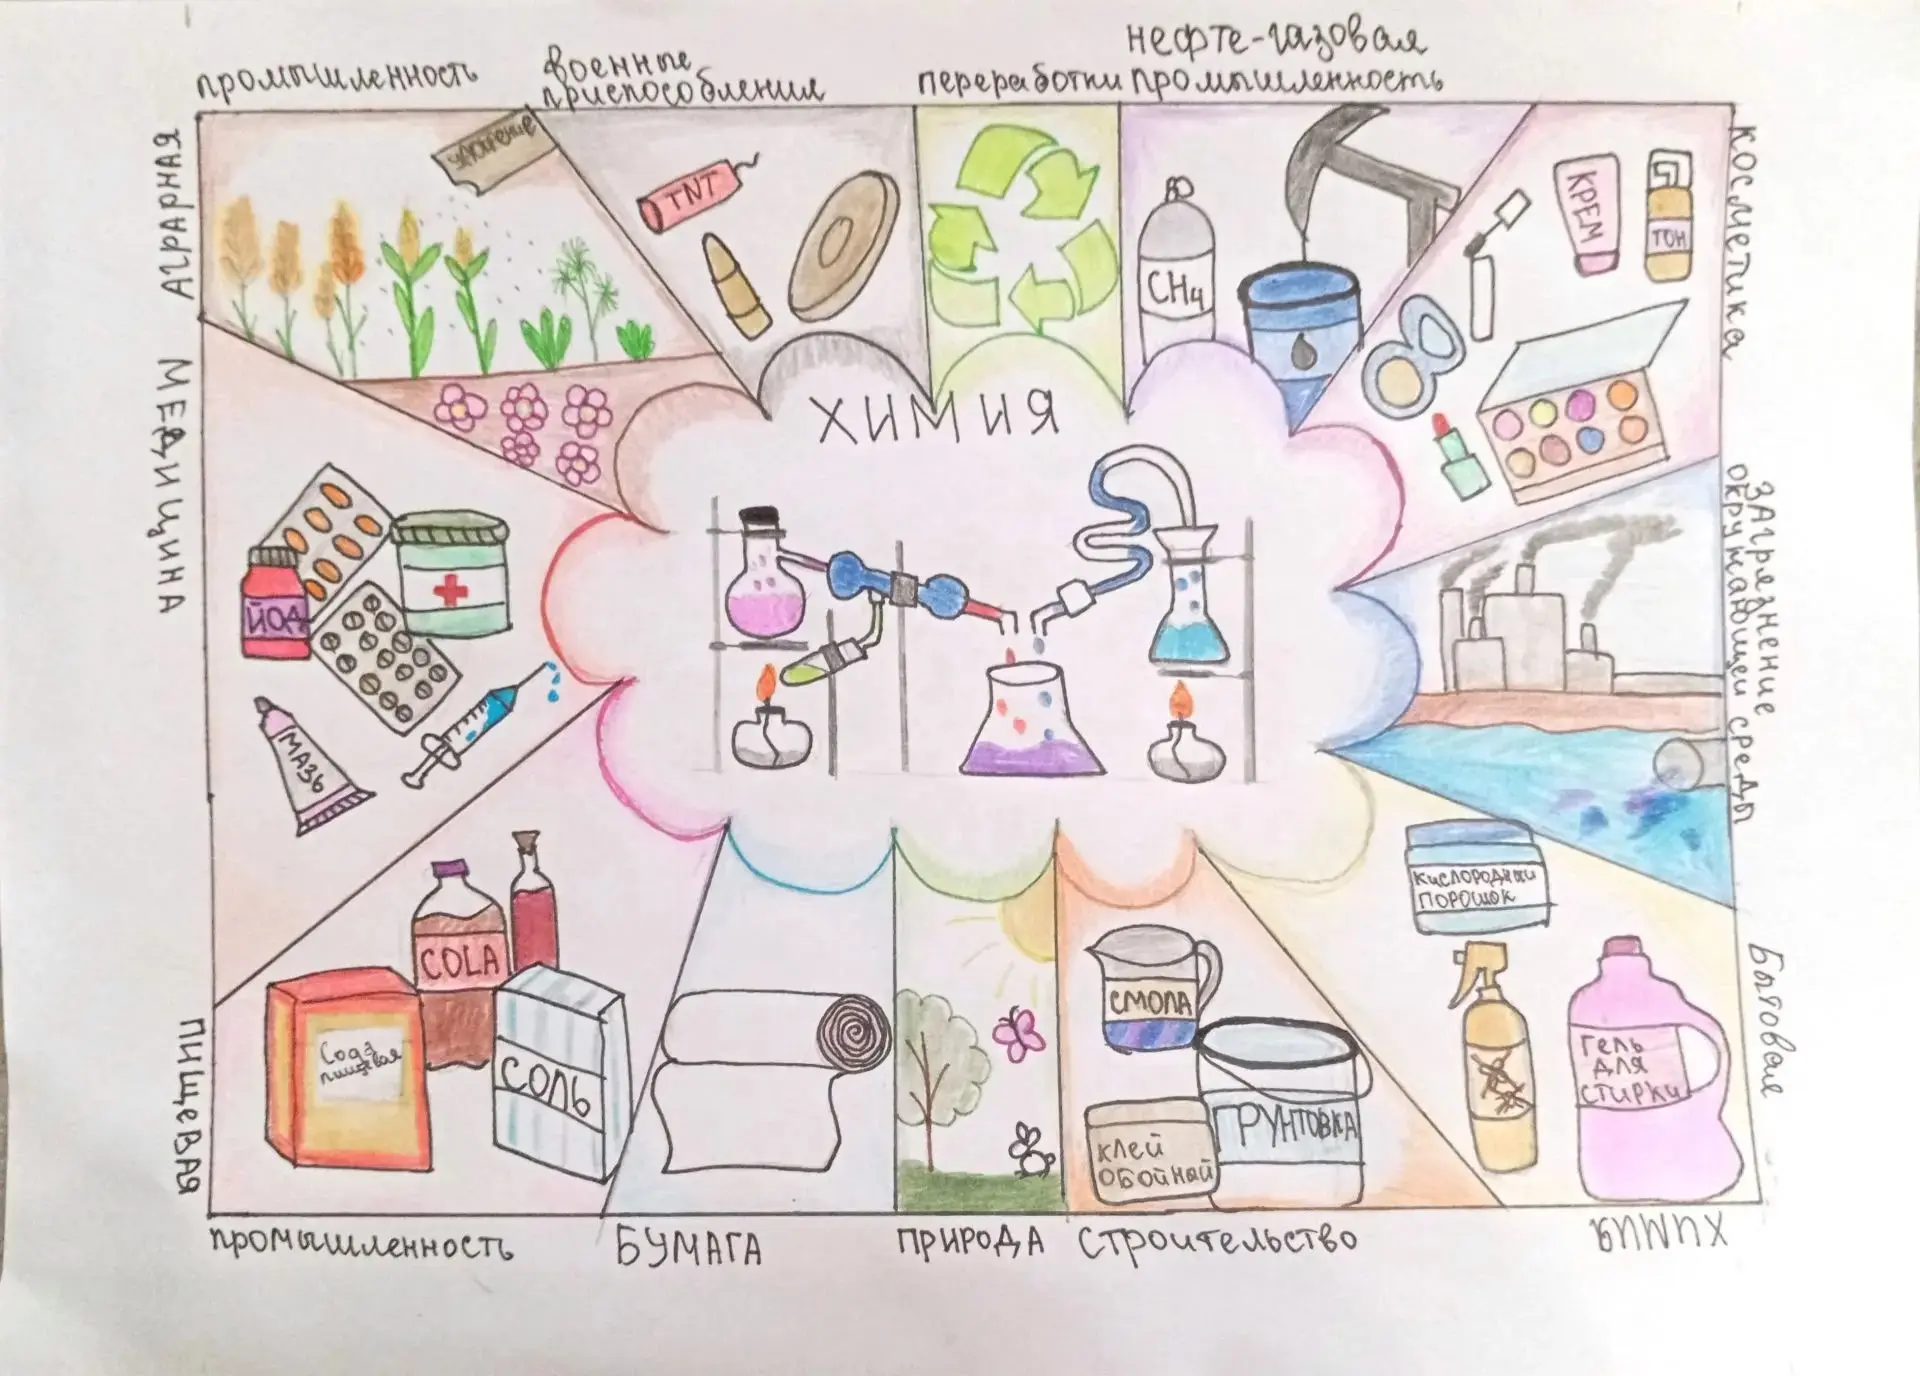 промышленность
военные
приспособления
переработки
нефте-газовая
промышленность
АГРАРНАЯ
МЕДИЦИНА
ПИЩЕВАЯ
КОСМЕТИКА
ЗАГРЯЗНЕНИЕ
ОКРУЖАЮЩЕЙ СРЕДЫ
Бытовая
ХИМИЯ
удобрение
TNT
CH4
КРЕМ
ТОН
ХИМИЯ
ЙОД
МАЗЬ
COLA
Сода
пищевая
СОЛЬ
СМОЛА
КЛЕЙ
ОБОЙНЫЙ
ГРУНТОВКА
КИСЛОРОДНЫЙ
ПОРОШОК
ГЕЛЬ
ДЛЯ
СТИРКИ
промышленность
БУМАГА
ПРИРОДА
строительство